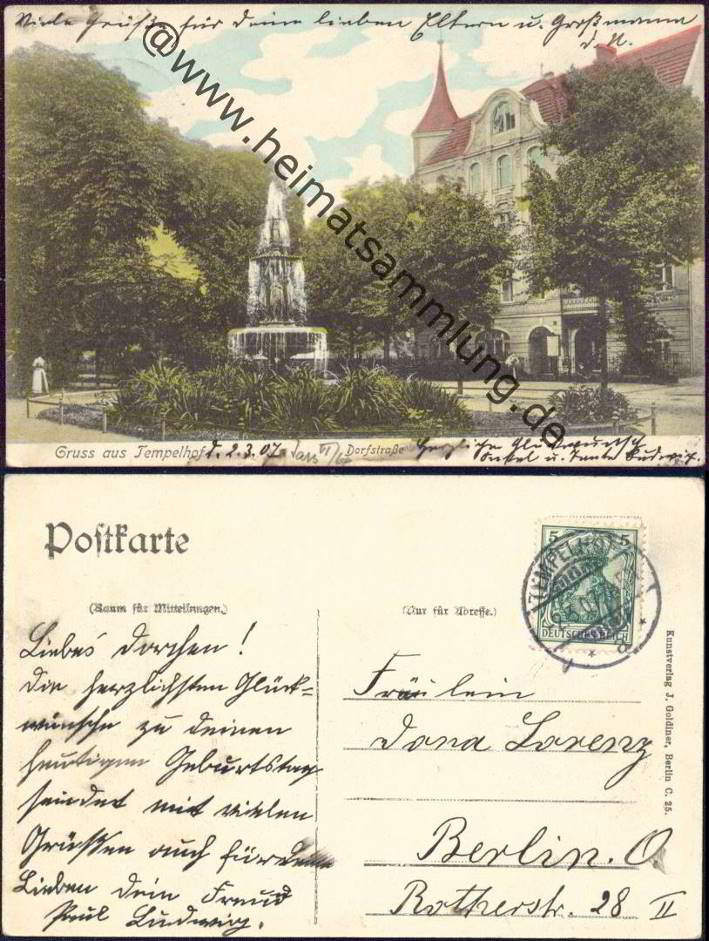 Viele Grüße für deine lieben Eltern u. Großmama
d. U.
@www.heimatsammlung.de
Gruss aus Tempelhof d. 2.3.07 Dorfstraße Herzliche Glückwunsch
Onkel u. Tante Ludwig.
Postkarte
(Raum für Mitteilungen.)
(Nur für Adresse.)
5 5
TEMPELHOF
DEUTSCHES REICH
Liebes Dorchen!
Die herzlichsten Glück=
wünsche zu deinen
heutigen Geburtstag
sendet mit vielen
Grüßen auch für deine
Lieben dein Freund
Paul Ludwig.
Fräulein
Dora Lorenz
Berlin. O
Rotherstr. 28 II
Kunstverlag J. Goldiner, Berlin C. 25.